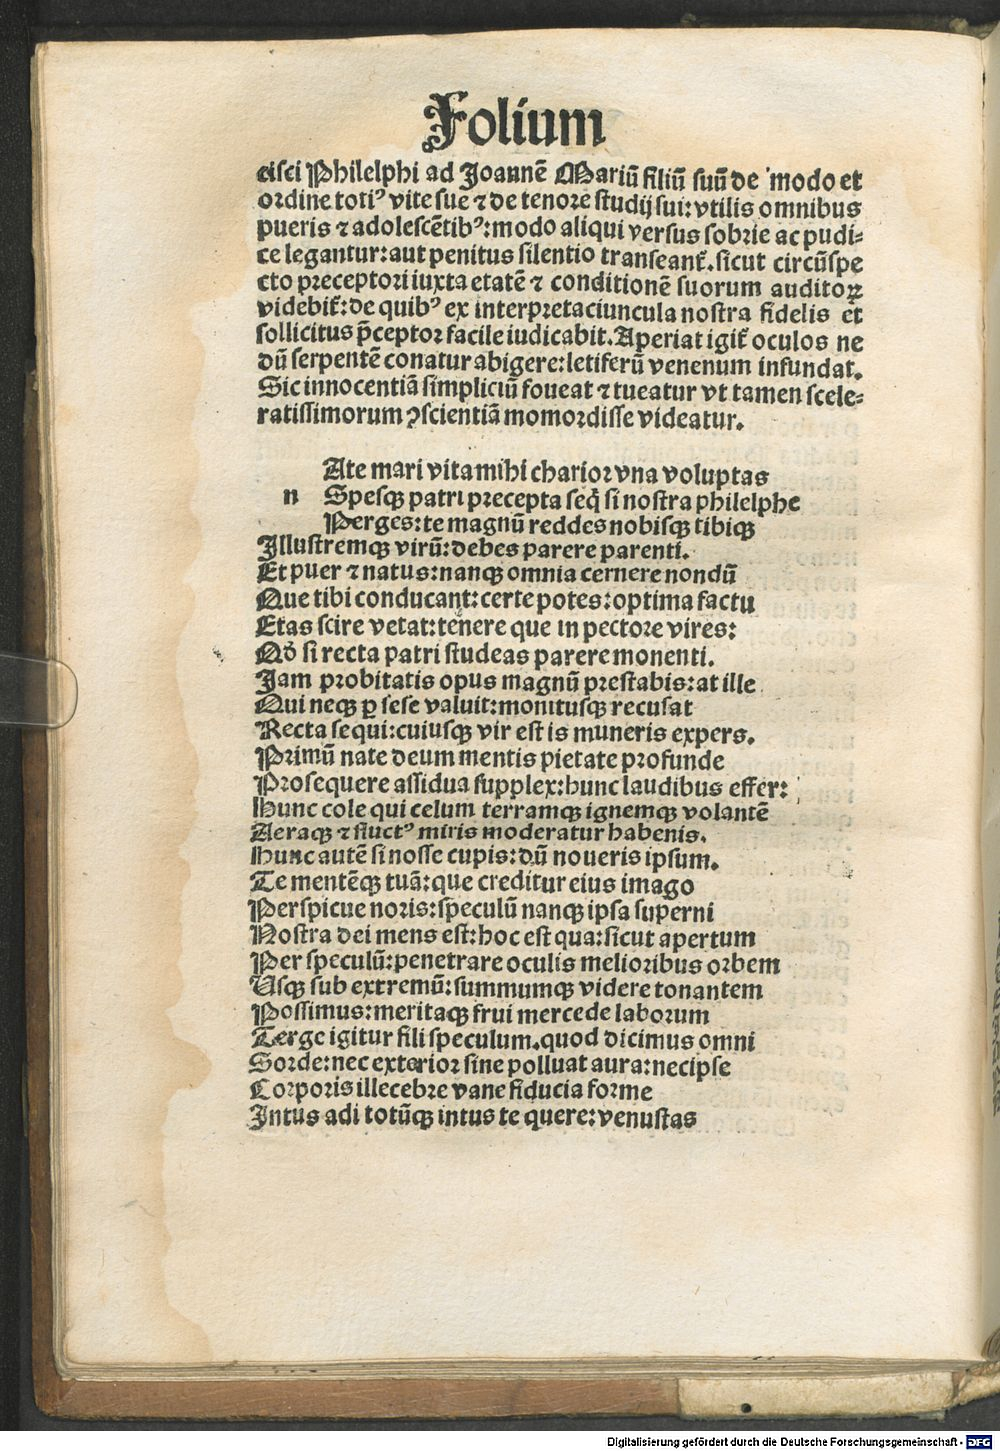 Folium
cisci Philelphi ad Joannē Mariū filiū suū de modo et
ordine totiꝰ vite sue ⁊ de tenore studij sui: vtilis omnibus
pueris ⁊ adolescētibꝰ: modo aliqui versus sobrie ac pudi⸗
ce legantur: aut penitus silentio transeant̄. sicut circūspe
cto preceptori iuxta etatē ⁊ conditionē suorum auditoꝝ
videbit̄: de quibꝰ ex interpretaciuncula nostra fidelis et
sollicitus p̄ceptor facile iudicabit. Aperiat igit̄ oculos ne
dū serpentē conatur abigere: letiferū venenum infundat.
Sic innocentiā simpliciū foueat ⁊ tueatur vt tamen scele⸗
ratissimorum ꝯscientiā momordisse videatur.
Ate mari vita mihi charior vna voluptas
n Spesqꝫ patri precepta seq̄ si nostra philelphe
Perges: te magnū reddes nobisqꝫ tibiqꝫ
Illustremqꝫ virū: debes parere parenti.
Et puer ⁊ natus: nanqꝫ omnia cernere nondū
Que tibi conducant: certe potes: optima factu
Etas scire vetat: tenere que in pectore vires:
Nō si recta patri studeas parere monenti.
Jam probitatis opus magnū prestabis: at ille
Qui neqꝫ ꝑ sese valuit: monitusqꝫ recusat
Recta sequi: cuiusqꝫ vir est is muneris expers.
Primū nate deum mentis pietate profunde
Prosequere assidua supplex: hunc laudibus effer:
Hunc cole qui celum terramqꝫ ignemqꝫ volantē
Aeraqꝫ ⁊ fluctꝰ miris moderatur habenis.
Hunc autē si nosse cupis: dū noueris ipsum.
Te mentēqꝫ tuā: que creditur eius imago
Perspicue noris: speculū nanqꝫ ipsa superni
Nostra dei mens est: hoc est qua: sicut apertum
Per speculū: penetrare oculis melioribus orbem
Usqꝫ sub extremū: summumqꝫ videre tonantem
Possimus: meritaqꝫ frui mercede laborum
Terge igitur fili speculum. quod dicimus omni
Sorde: nec exterior sine polluat aura: nec ipse
Corporis illecebre vane fiducia forme
Intus adi totūqꝫ intus te quere: venustas
Digitalisierung gefördert durch die Deutsche Forschungsgemeinschaft - DFG